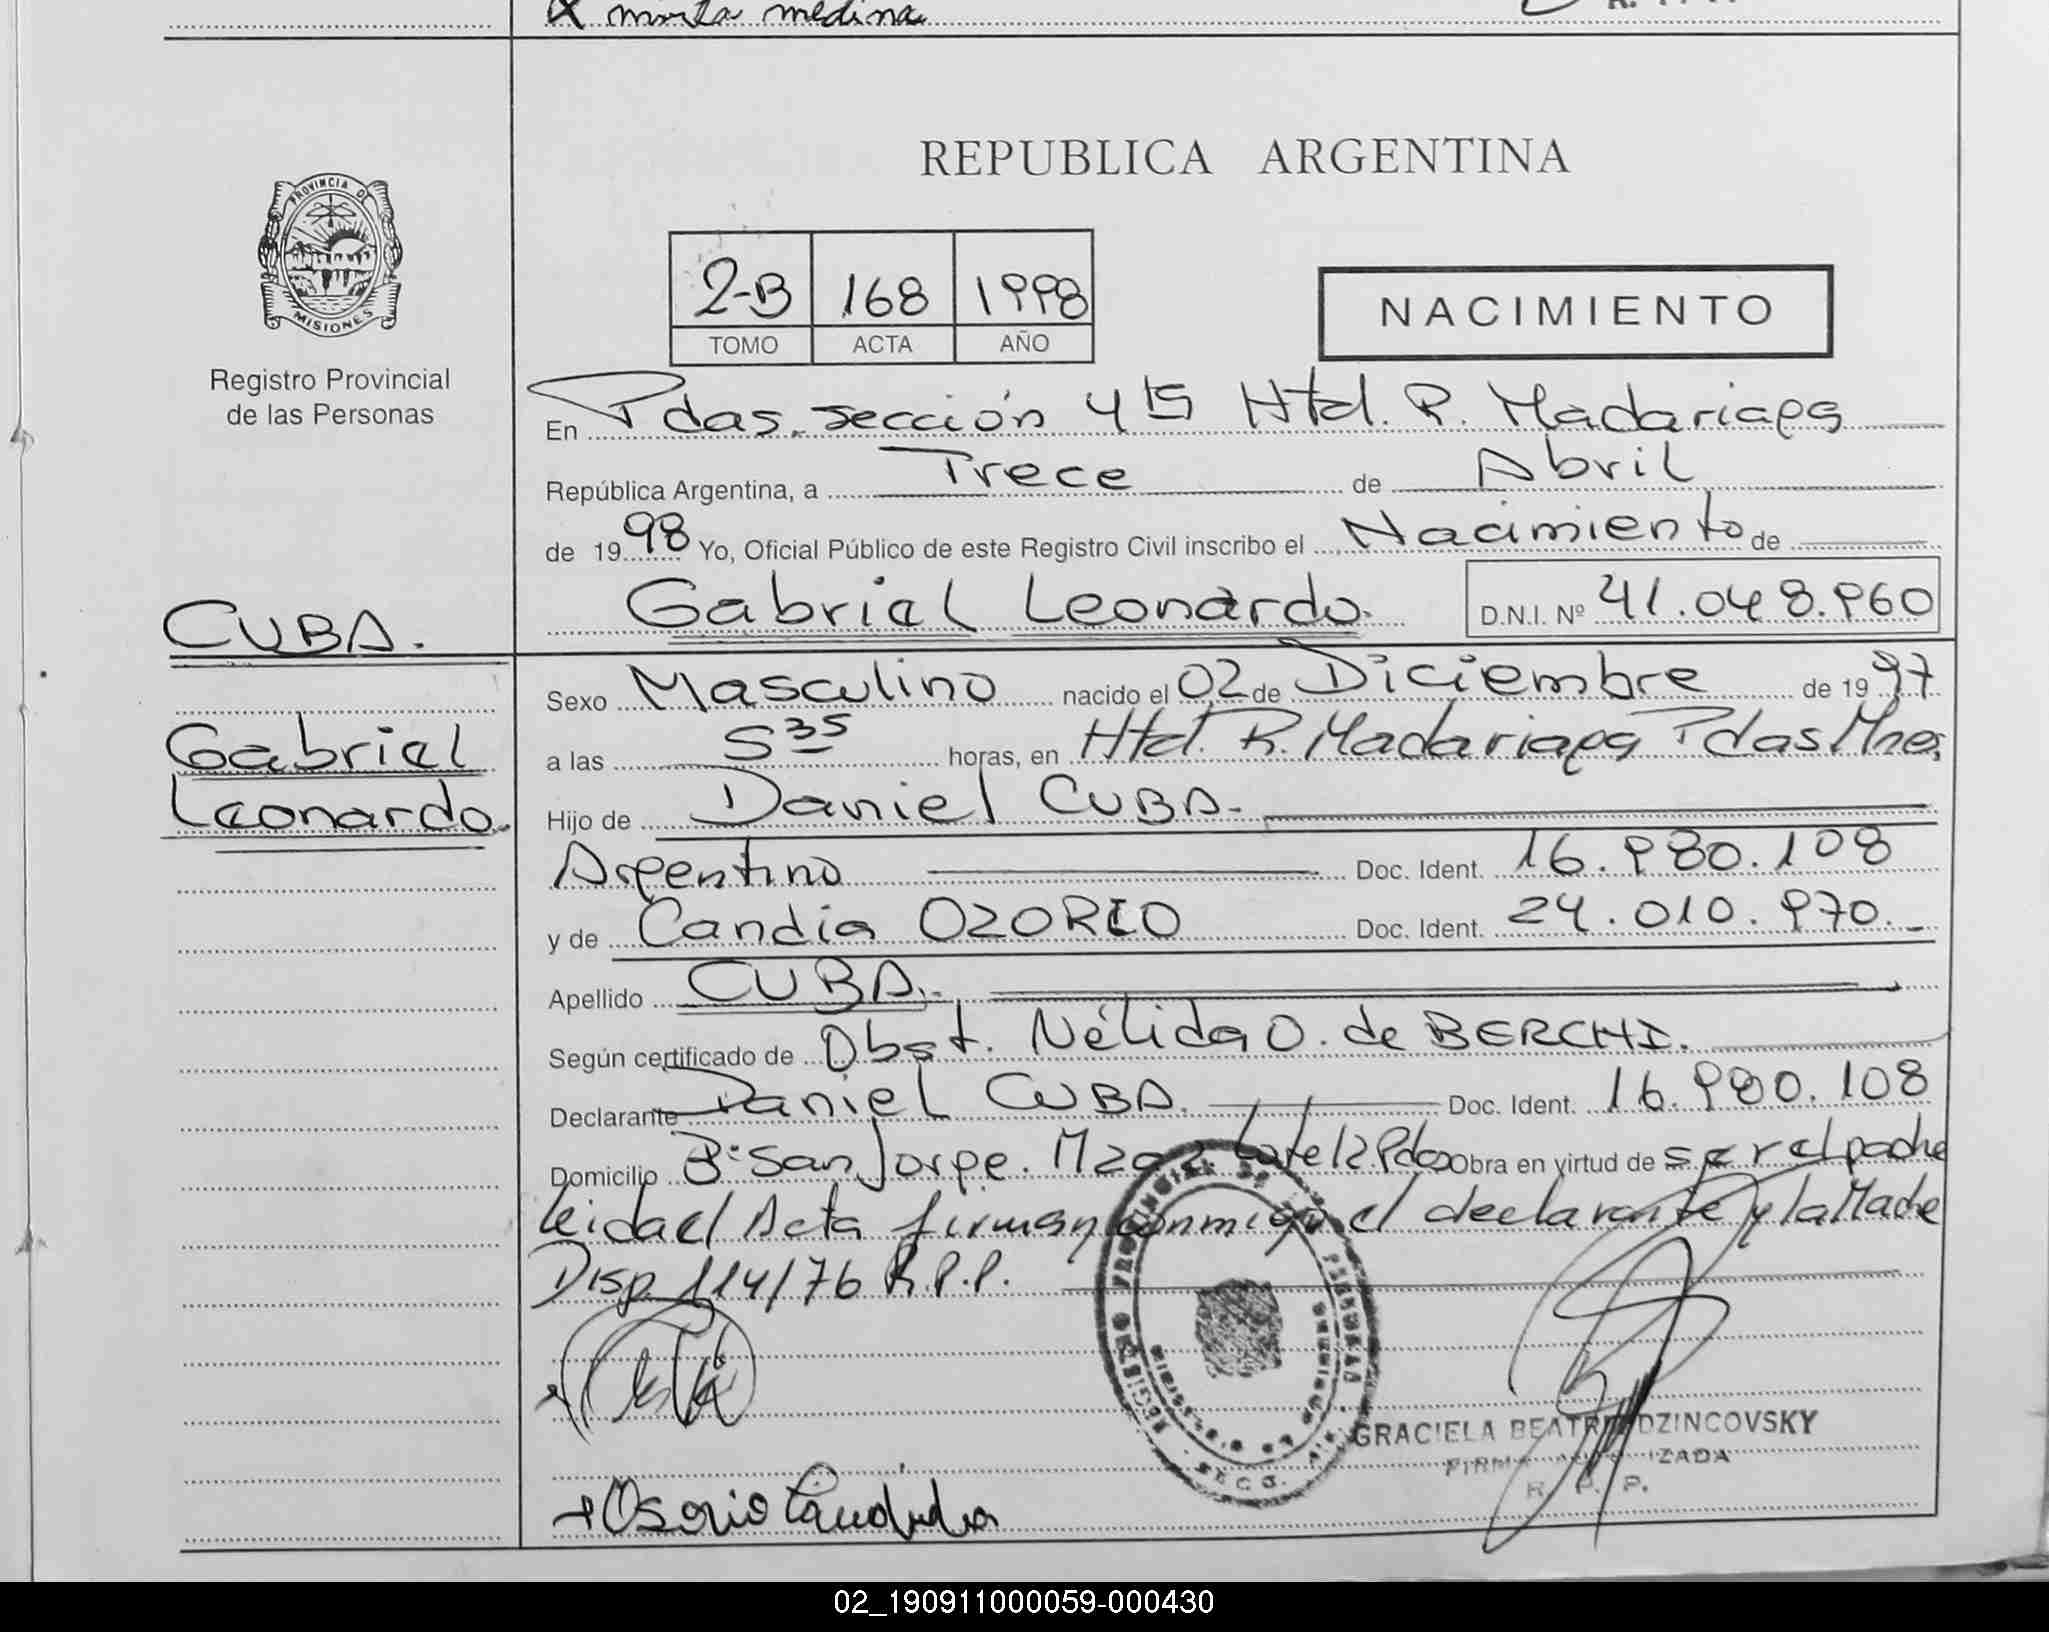 x mirta medina
REPUBLICA ARGENTINA
PROVINCIA DE
MISIONES
Registro Provincial
de las Personas
2-B 168 1998
TOMO ACTA AÑO
NACIMIENTO
En Pdas. sección 4ta Htal. R. Madariaga
República Argentina, a Trece de Abril
de 1998 Yo, Oficial Público de este Registro Civil inscribo el Nacimiento de
Gabriel Leonardo. D.N.I. Nº 41.048.960
CUBA.
Gabriel
Leonardo.
Sexo Masculino nacido el 02 de Diciembre de 1997
a las 5 35 horas, en Htal. R. Madariaga Pdas Mnes
Hijo de Daniel CUBA.
Argentino Doc. Ident. 16.980.108
y de Candia OZORIO Doc. Ident. 24.010.970.
Apellido CUBA.
Según certificado de Obst. Nélida O. de BERCHI.
Declarante Daniel CUBA. Doc. Ident. 16.980.108
Domicilio Bº San Jorge. Mza 2 Lote 12 Pdas Obra en virtud de ser el padre
leida el Acta firman conmigo el declarante y la Madre
Disp. 114/76 R.P.P.
REGISTRO PROVINCIAL DE
SECC.
GRACIELA BEATRIZ DZINCOVSKY
FIRMA AUTORIZADA
R. P. P.
+ Osorio Candida
02_190911000059-000430